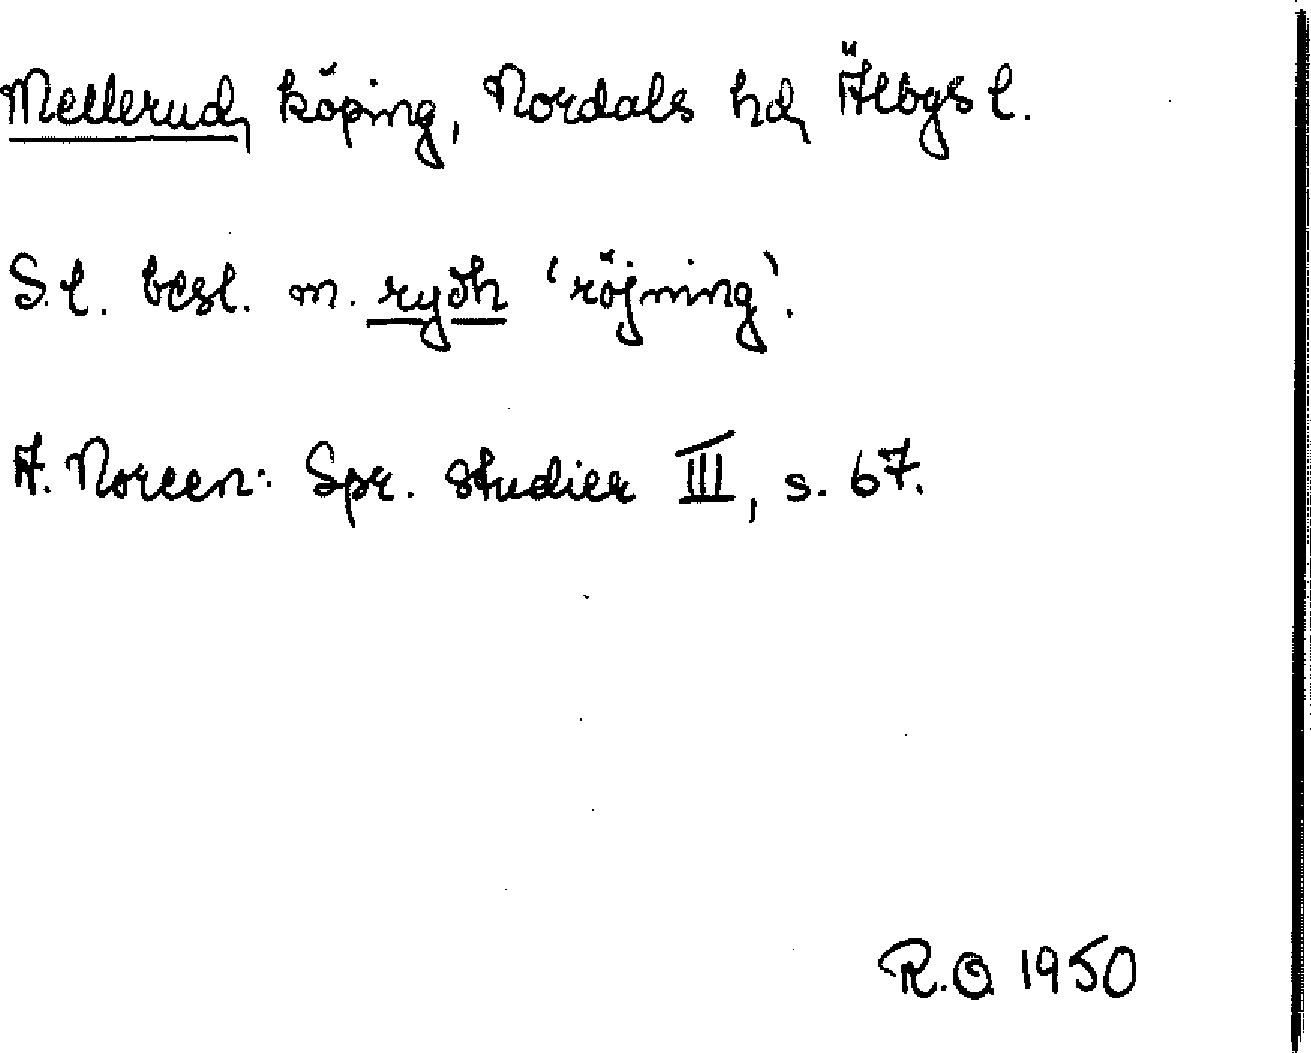 Mellerud, köping, Nordals hd, Älvbgs l.
S. l. besl. m. rydh 'röjning'.
A. Noreen: Spr. studier III, s. 67.
R.O. 1950